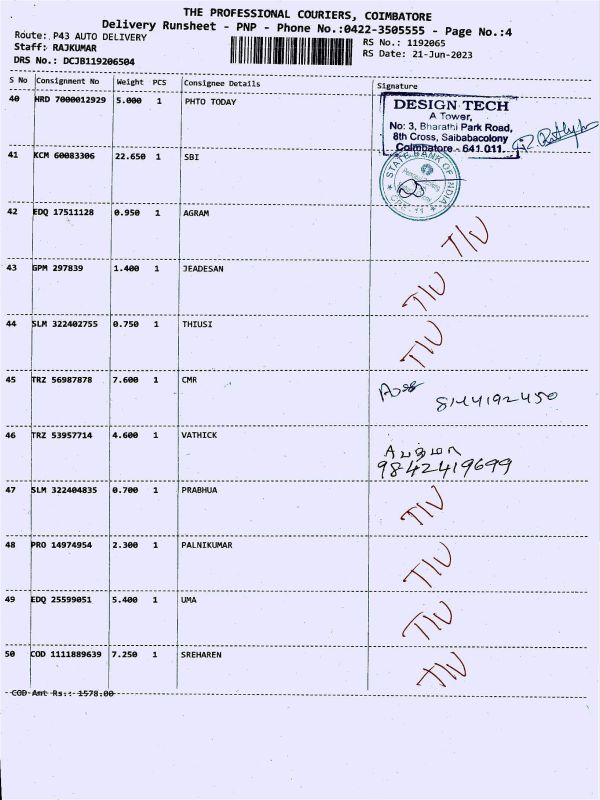 THE PROFESSIONAL COURIERS, COIMBATORE
Delivery Runsheet - PNP - Phone No.:0422-3505555 - Page No.:4
Route: P43 AUTO DELIVERY
RS No.: 1192065
Staff: RAJKUMAR
RS Date: 21-Jun-2023
DRS No.: DCJB119206504
S No Consignment No Weight PCS Consignee Details Signature
40 HRD 7000012929 5.000 1 PHTO TODAY
DESIGN TECH
A Tower,
No: 3, Bharathi Park Road,
8th Cross, Saibabacolony
Coimbatore - 641 011.
41 KCM 60083306 22.650 1 SBI
STATE BANK OF INDIA
42 EDQ 17511128 0.950 1 AGRAM T/V
43 GPM 297839 1.400 1 JEADESAN T/V
44 SLM 322402755 0.750 1 THIUSI T/V
45 TRZ 56987878 7.600 1 CMR
8144192450
46 TRZ 53957714 4.600 1 VATHICK
9842419699
47 SLM 322404835 0.700 1 PRABHUA T/V
48 PRO 14974954 2.300 1 PALNIKUMAR T/V
49 EDQ 25599051 5.400 1 UMA T/V
50 COD 1111889639 7.250 1 SREHAREN T/V
COD Amt Rs.: 1578.00